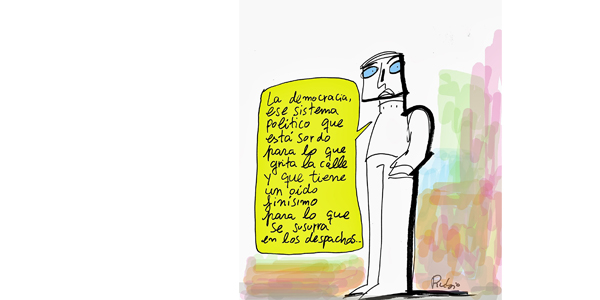 La democracia,
ese sistema
político que
está sordo
para lo que
grita la calle
y que tiene
un oído
finísimo
para lo que
se susurra
en los despachos...